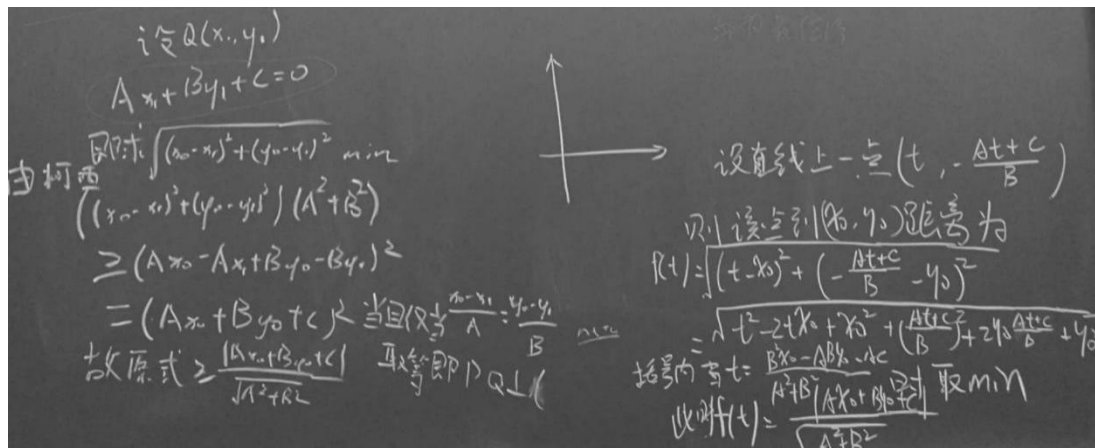 设Q(x₁,y₁)
Ax₁+By₁+C=0
即求√((x₀-x₁)²+(y₀-y₁)²) min
由柯西
((x₀-x₁)²+(y₀-y₁)²)(A²+B²)
≥(Ax₀-Ax₁+By₀-By₁)²
=(Ax₀+By₀+C)² 当且仅当(x₀-x₁)/A=(y₀-y₁)/B
取等即PQ⊥l
故原式≥|Ax₀+By₀+C|/√(A²+B²)
设直线上一点(t,-(At+C)/B)
则该点到(x₀,y₀)距离为
f(t)=√((t-x₀)²+(-(At+C)/B-y₀)²)
=√(t²-2tx₀+x₀²+((At+C)/B)²+2y₀(At+C)/B+y₀²
括号内当t=(B²x₀-ABy₀-AC)/(A²+B²)时取min
此时f(t)=|Ax₀+By₀+C|/√(A²+B²)